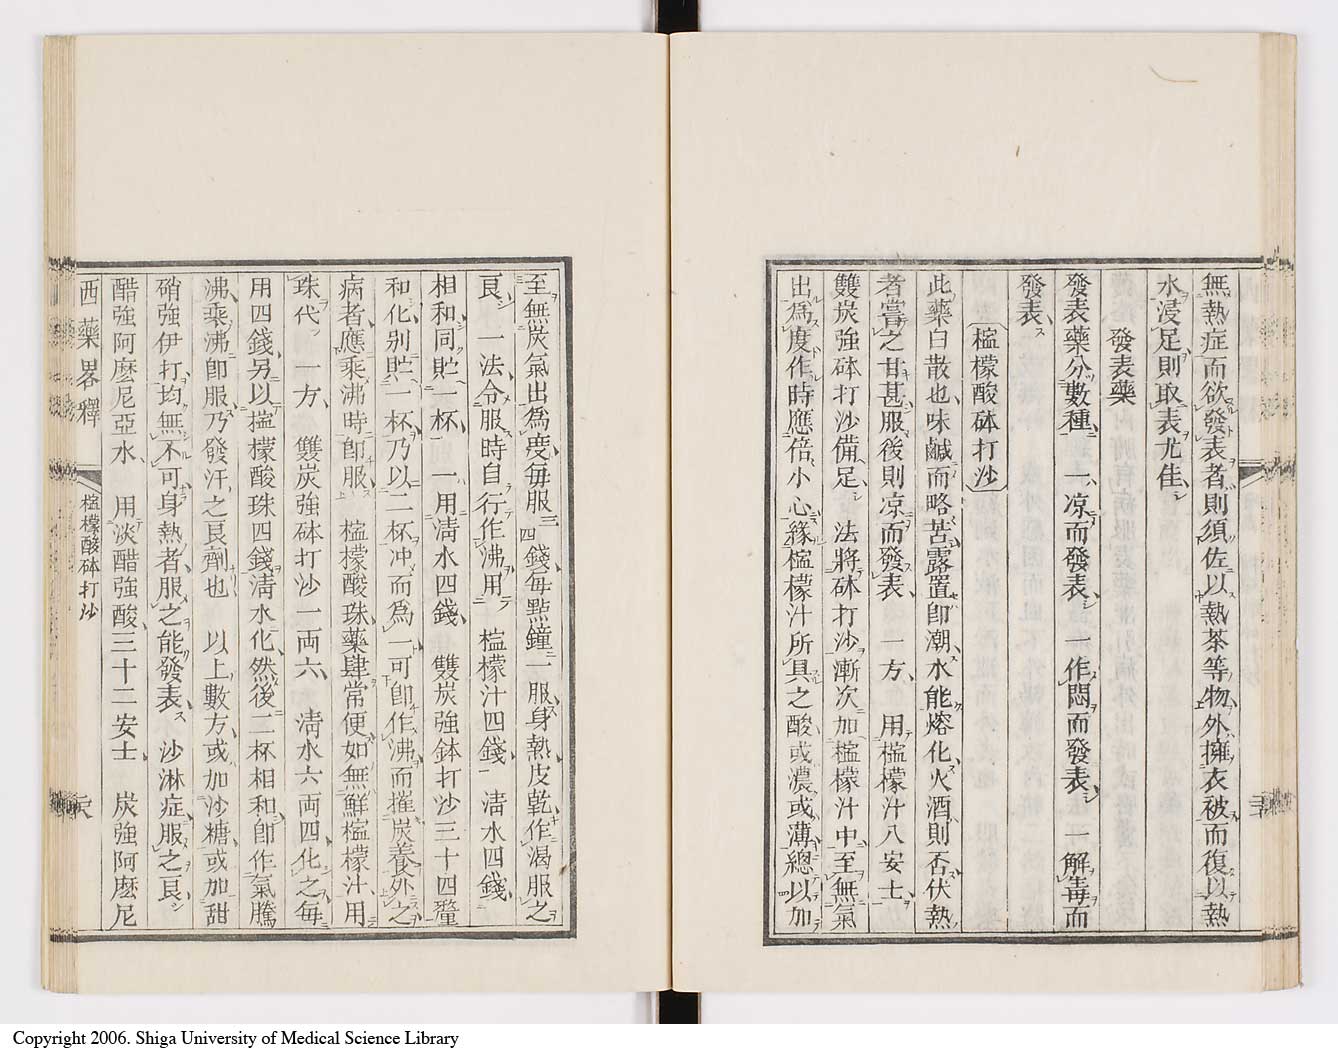 無熱症而欲發表者則須佐以熱茶等物外擁衣被而復以熱
水浸足則取表尤佳
發表藥
發表藥分數種一凉而發表一作悶而發表一解毒而
發表
檻檬酸砵打沙
此藥曰散也味鹹而略苦露置卽潮水能熔化火酒則否伏熱
者嘗之甘甚服後則凉而發表 一方 用檻檬汁八安士
雙炭强砵打沙備足 法將砵打沙漸次加檻檬汁中至無氣
出爲度作時應倍小心緣檻檬汁所具之酸或濃或薄總以加
至無炭氣出爲度每服三四錢每點鐘一服身熱皮乾作渴服之
良 一法令服時自行作沸用 檻檬汁四錢 淸水四錢
相和同貯一杯 一用淸水四錢 雙炭强鉢打沙三十四釐
和化別貯一杯乃以二杯冲而爲一可卽作沸而摧炭養外之
病者應乘沸時卽服 檻檬酸珠藥肆常便如無鮮檻檬汁用
珠代 一方 雙炭强砵打沙一両六 淸水六両四化之每
用四錢另以檻檬酸珠四錢淸水化然後二杯相和卽作氣騰
沸乘沸卽服乃發汗之良劑也 以上數方或加沙糖或加甜
硝强伊打均無不可身熱者服之能發表 沙淋症服之良
醋强阿麽尼亞水 用淡醋强酸三十二安士 炭强阿麽尼
西藥畧釋
檻檬酸砵打沙
Copyright 2006. Shiga University of Medical Science Library